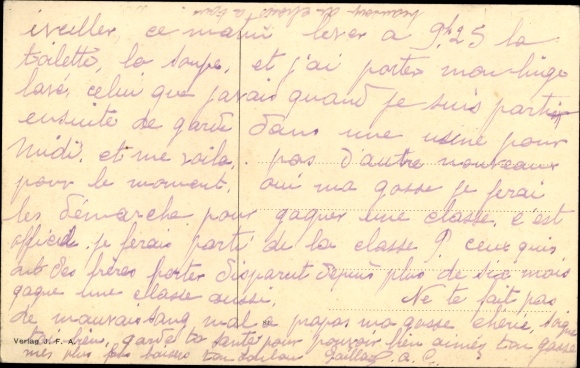 éveiller ce matin lever a 9h25 la
toilette, la soupe, et j'ai porter mon linge
lavé celui que j'avais quand je suis parti
ensuite de garde dans une usine pour
midi. et me voila, pas d'autre nouveaux
pour le moment, oui ma gosse je ferai
les démarche pour gagner une classe, c est
officiel. je ferais parti de la classe 9. ceux qui
ont des frères porter disparut depuis plus de six mois
gagne une classe aussi. Ne te fait pas
de mauvais sang mal a propos ma gosse chérie, soigne
toi bien, garde ta santé pour pouvoir bien aimer ton gosse
mes plus fous baisers ton
Verlag J. F. A.